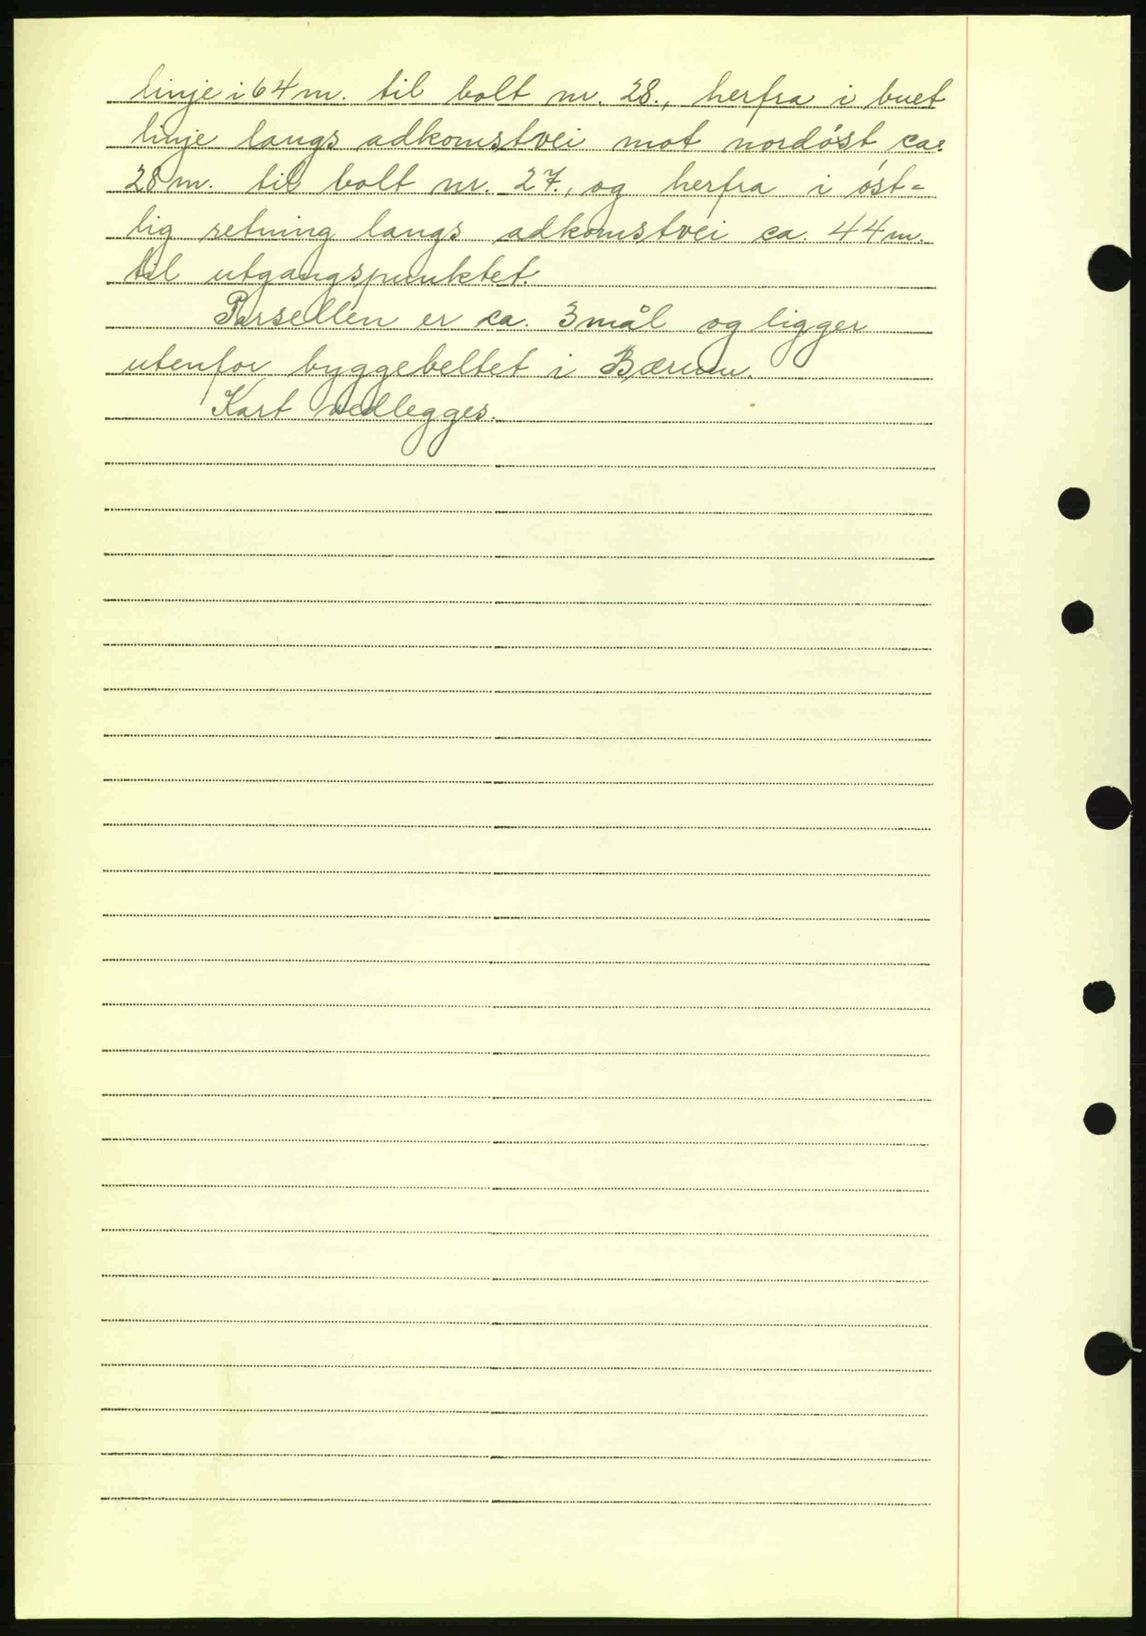 linje i 64 m. til bolt nr. 28., herfra i buet
linje langs adkomstvei mot nordøst ca.
28 m. til bolt nr. 27., og herfra i øst=
lig retning langs adkomstvei ca. 44 m.
til utgangspunktet.
Parsellen er ca. 3 mål og ligger
utenfor byggebeltet i Bærum.
Kart vedlegges.